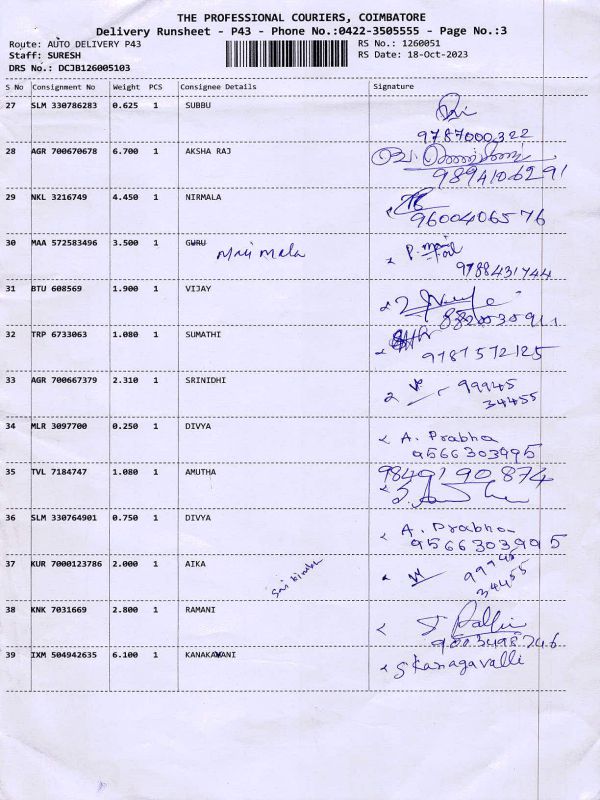 THE PROFESSIONAL COURIERS, COIMBATORE
Delivery Runsheet - P43 - Phone No.:0422-3505555 - Page No.:3
Route: AUTO DELIVERY P43 RS No.: 1260051
Staff: SURESH RS Date: 18-Oct-2023
DRS No.: DCJB126005103
S No Consignment No Weight PCS Consignee Details Signature
27 SLM 330786283 0.625 1 SUBBU
9787000322
28 AGR 700670678 6.700 1 AKSHA RAJ
9894106291
29 NKL 3216749 4.450 1 NIRMALA
9600406576
30 MAA 572583496 3.500 1 GURU P. mani
9788431744
31 BTU 608569 1.900 1 VIJAY
32 TRP 6733063 1.080 1 SUMATHI
9787572125
33 AGR 700667379 2.310 1 SRINIDHI 99945
34455
34 MLR 3097700 0.250 1 DIVYA A. Prabha
9566303995
35 TVL 7184747 1.080 1 AMUTHA 9849190874
36 SLM 330764901 0.750 1 DIVYA A. Prabha
9566303995
37 KUR 7000123786 2.000 1 AIKA 99945
34455
38 KNK 7031669 2.800 1 RAMANI
9003498746
39 IXM 504942635 6.100 1 KANAKAVANI S Kanagavalli